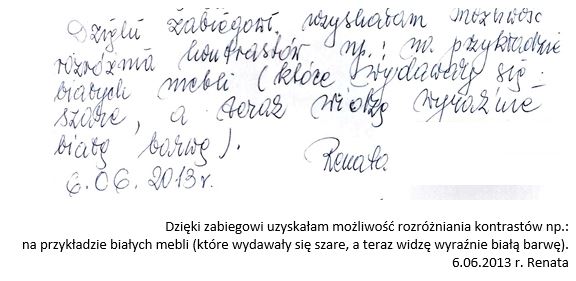 Dzięki zabiegowi uzyskałam możliwość
rozróżnia kontrastów np.: na przykładzie
białych mebli (które wydawały się
szare, a teraz widzę wyraźnie
białą barwę).
Renata
6.06.2013r.
Dzięki zabiegowi uzyskałam możliwość rozróżniania kontrastów np.:
na przykładzie białych mebli (które wydawały się szare, a teraz widzę wyraźnie białą barwę).
6.06.2013 r. Renata